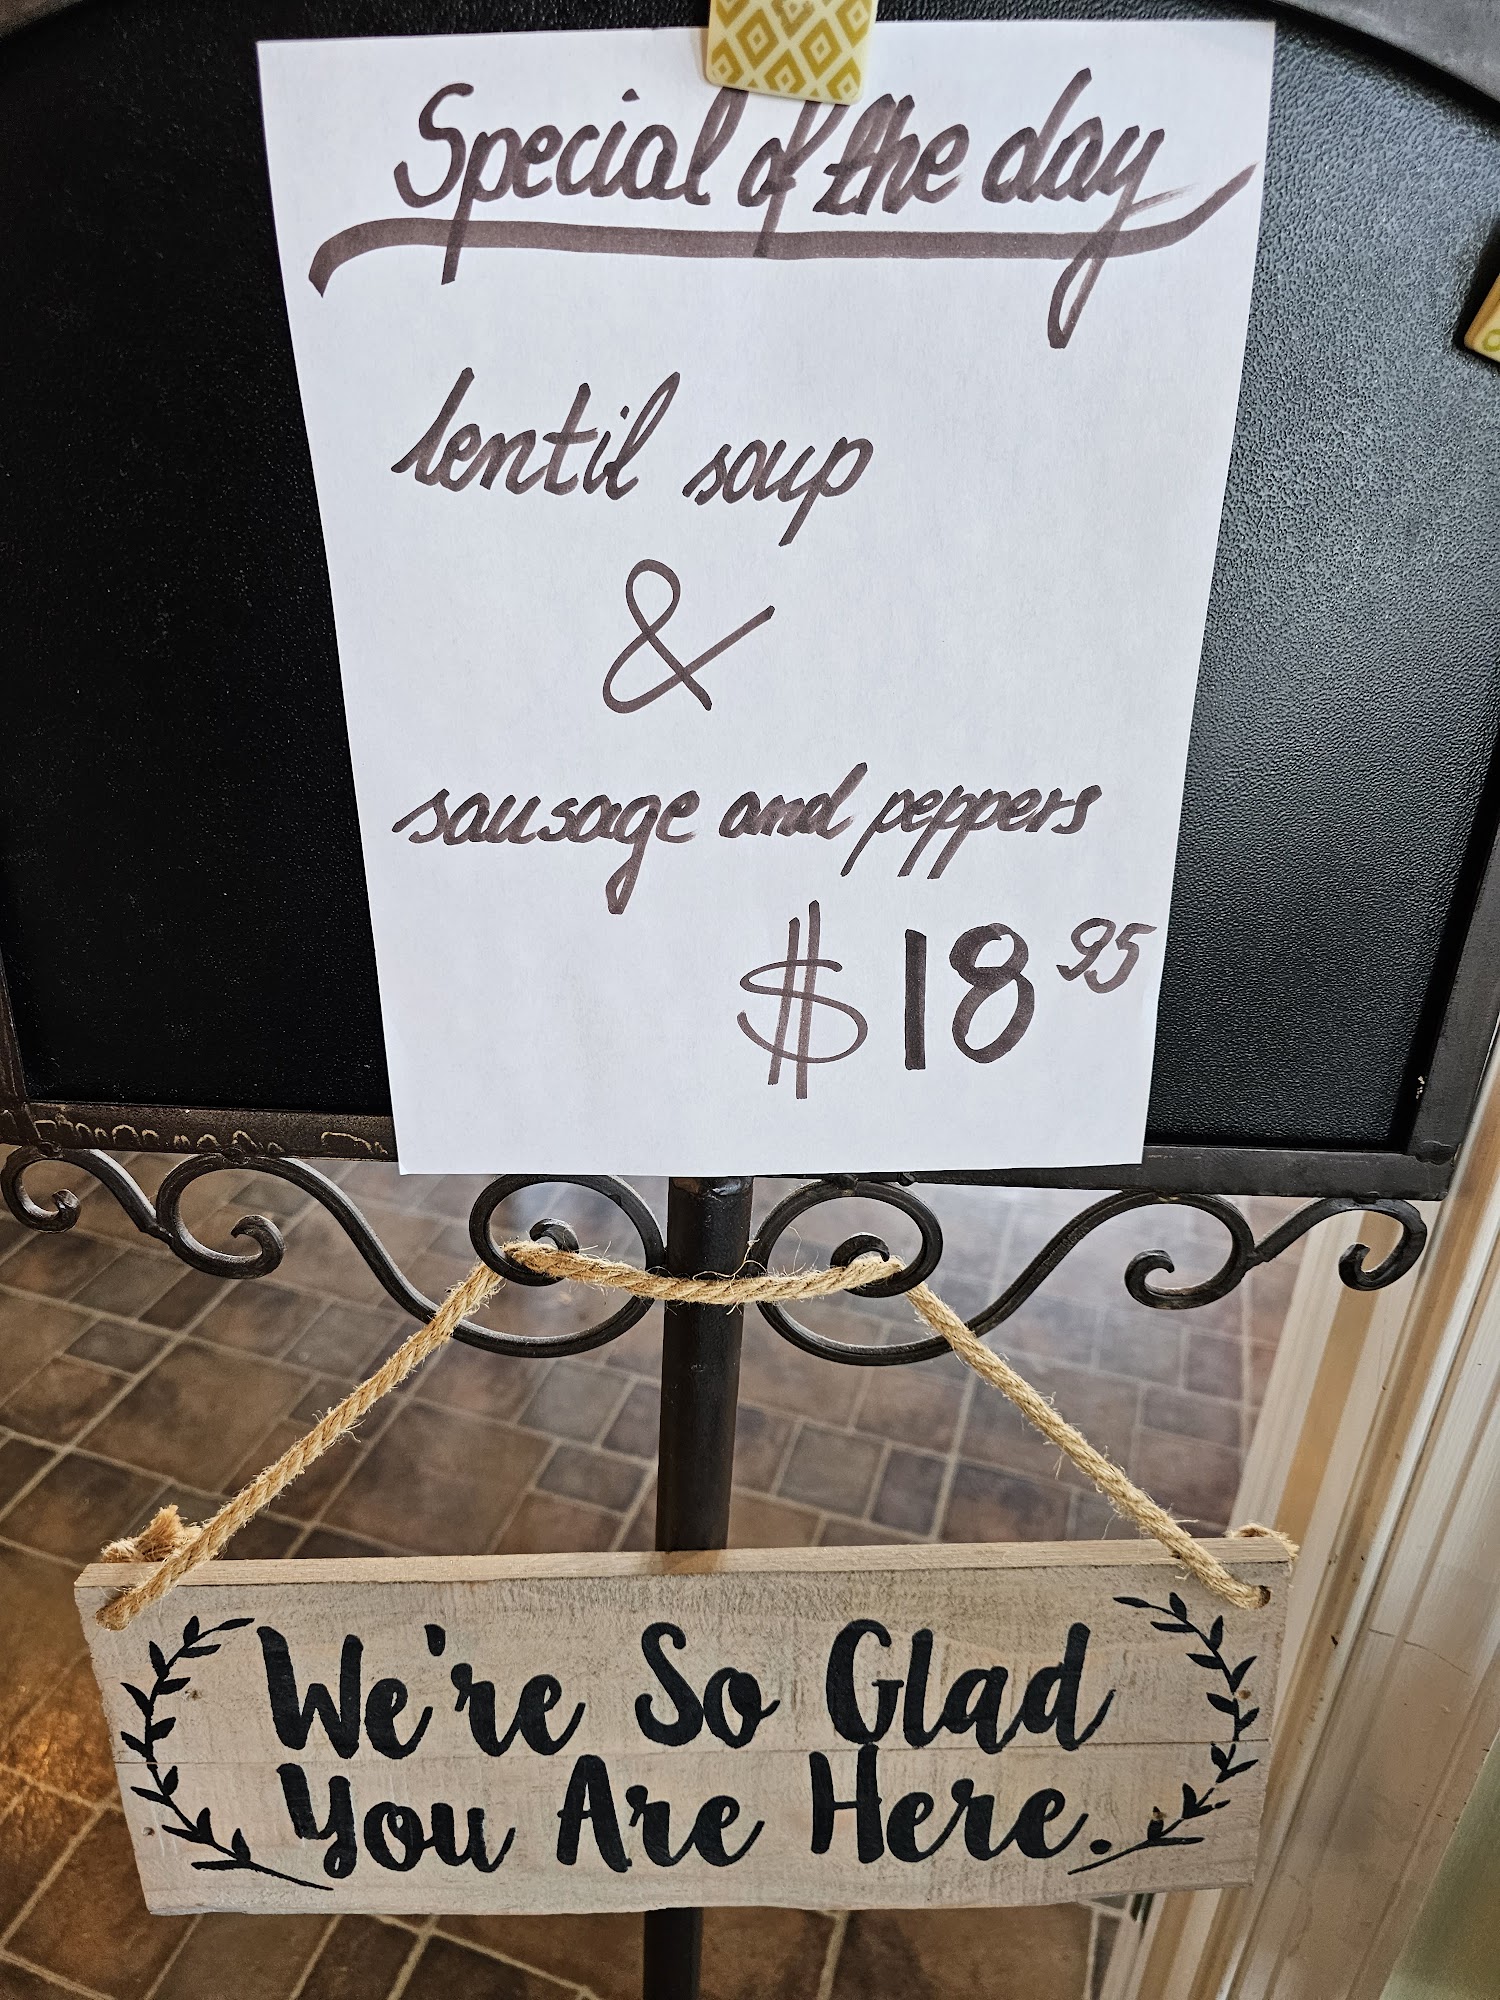 Special of the day
lentil soup
&
sausage and peppers
$18 95
We're So Glad
You Are Here.